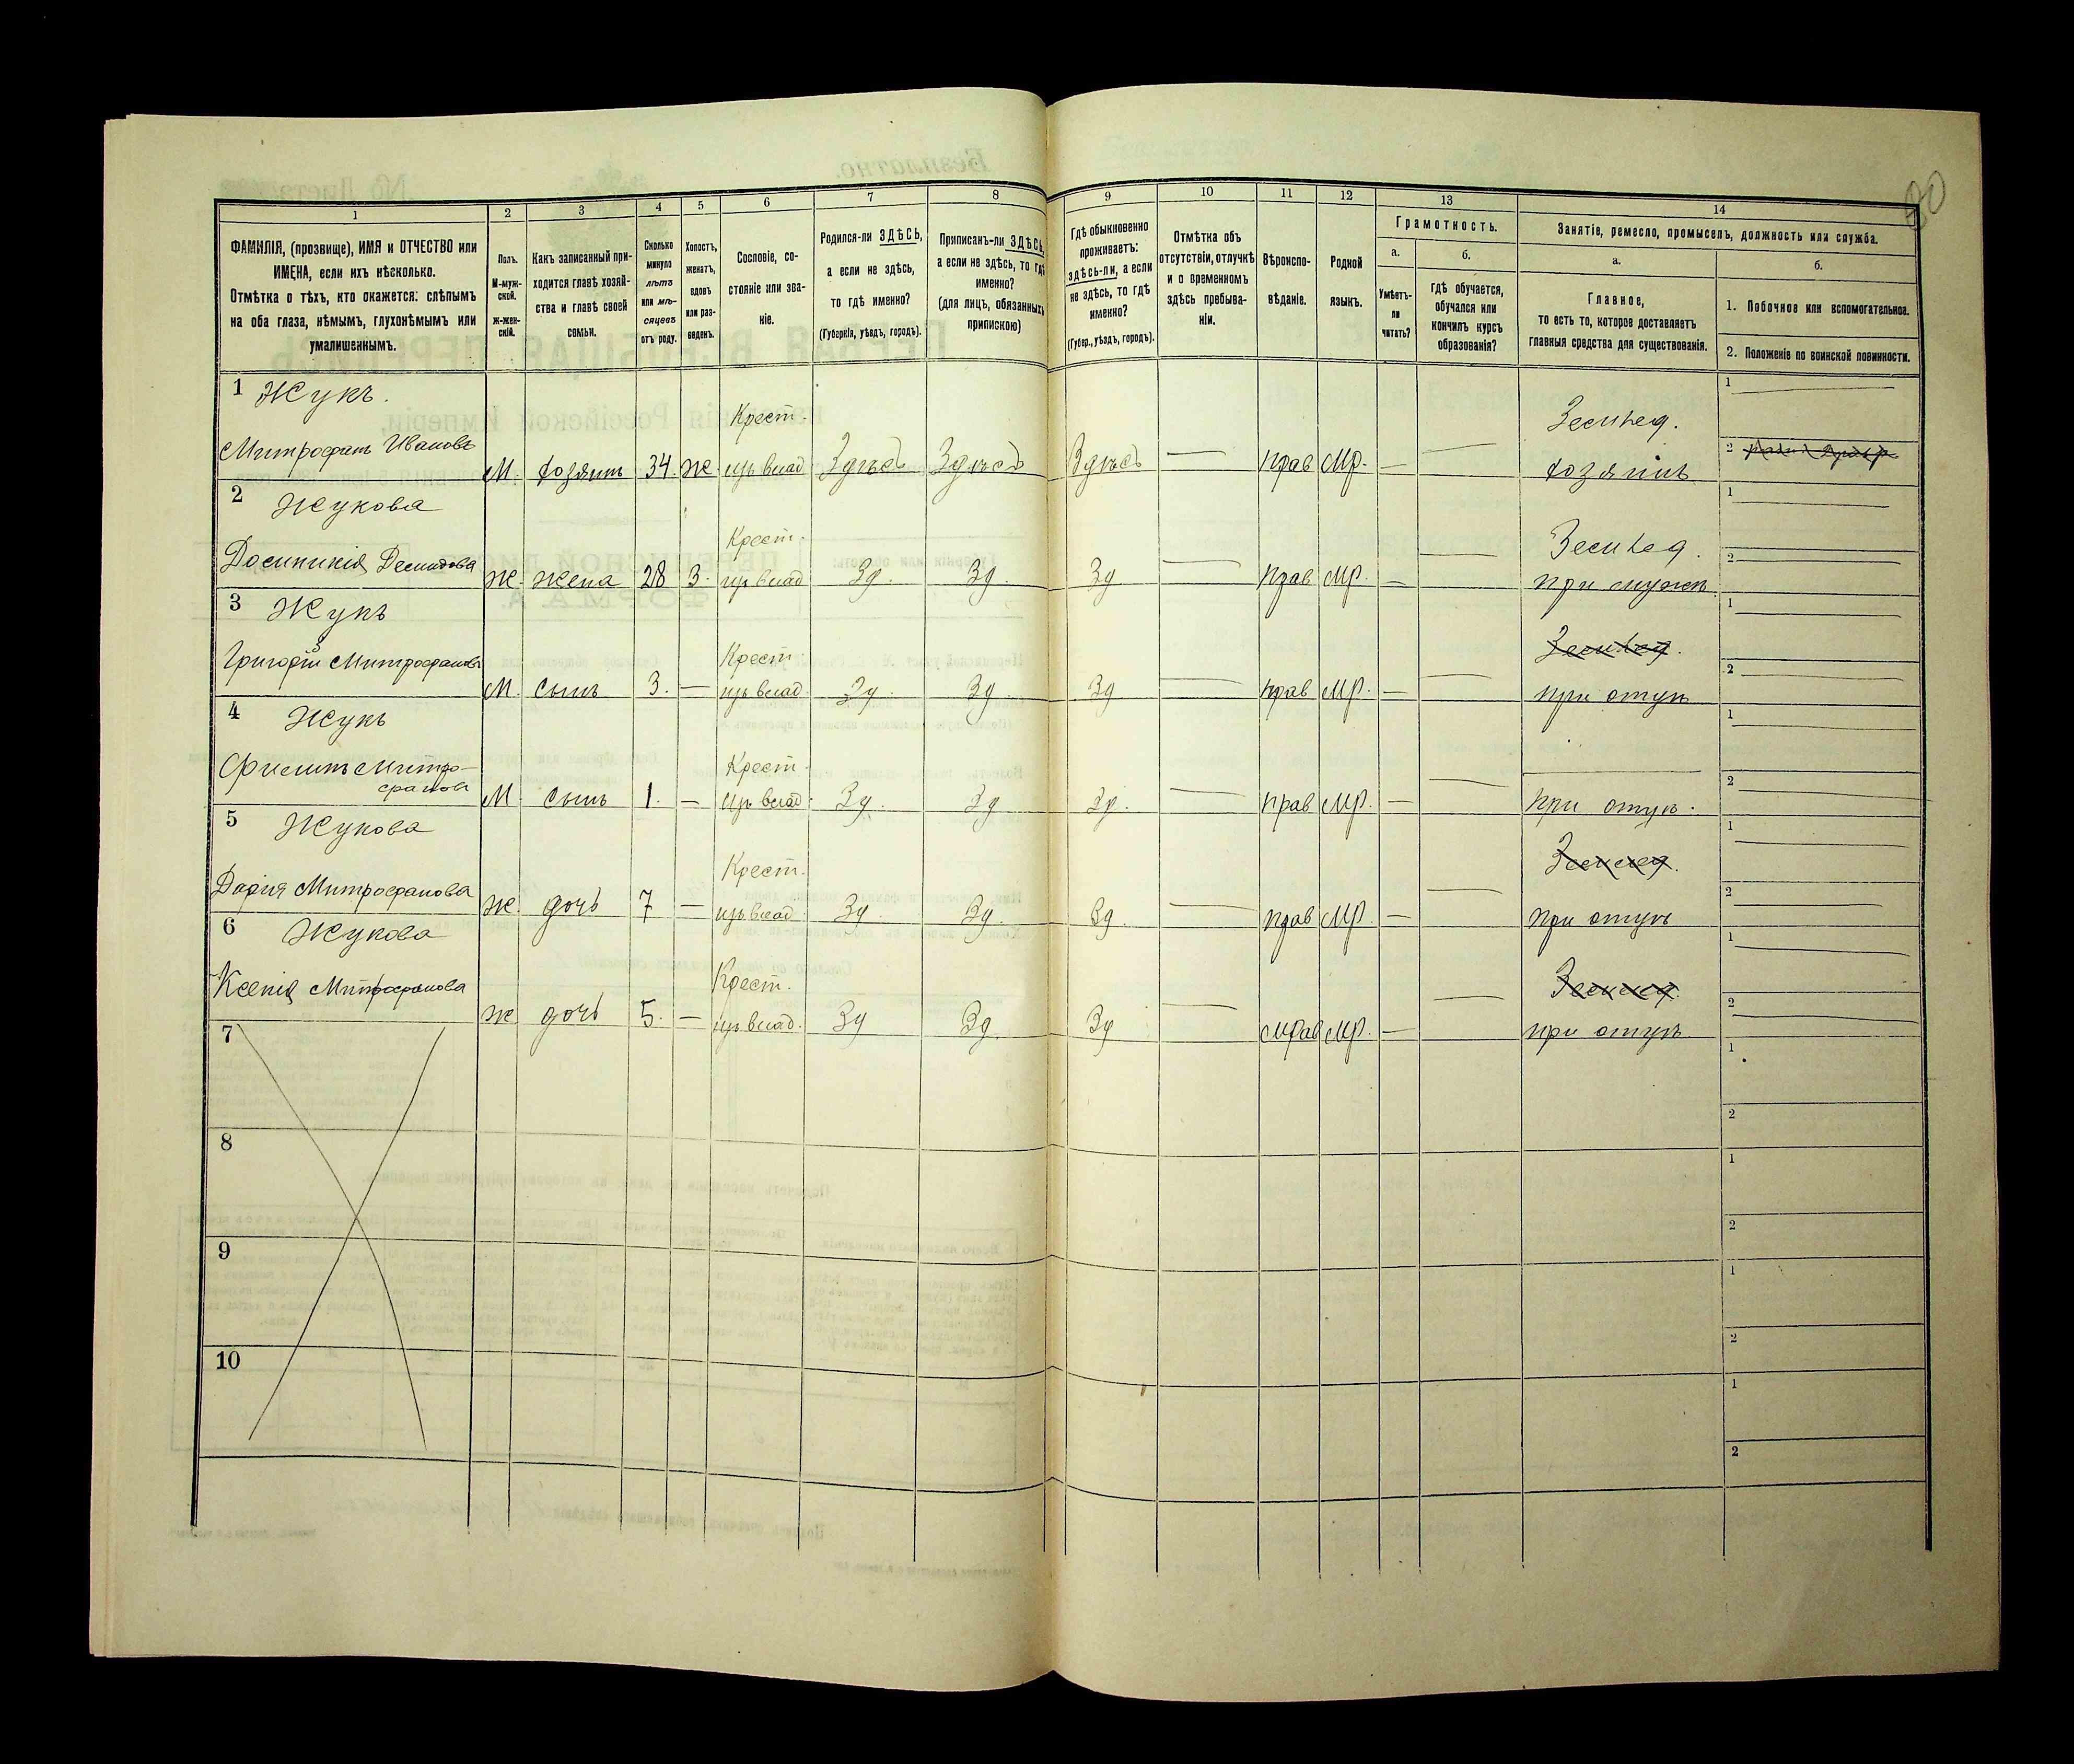 80
1 2 3 4 5 6 7 8 9 10 11 12 13 14
ФАМИЛІЯ, (прозвище), ИМЯ и ОТЧЕСТВО или
ИМЕНА, если ихъ нѣсколько.
Отмѣтка о тѣхъ, кто окажется: слѣпымъ
на оба глаза, нѣмымъ, глухонѣмымъ или
умалишеннымъ.
Полъ.
М-муж-
ской.
Ж-жен-
скій.
Какъ записанный при-
ходится главѣ хозяй-
ства и главѣ своей
семьи.
Сколько
минуло
лѣтъ
или мѣ-
сяцевъ
отъ роду.
Холостъ,
женатъ,
вдовъ
или раз-
веденъ.
Сословіе, со-
стояніе или зва-
ніе.
Родился-ли ЗДѢСЬ,
а если не здѣсь,
то гдѣ именно?
(Губернія, уѣздъ, городъ).
Приписанъ-ли ЗДѢСЬ,
а если не здѣсь, то гдѣ
именно?
(для лицъ, обязанныхъ
припискою)
Гдѣ обыкновенно
проживаетъ:
здѣсь-ли, а если
не здѣсь, то гдѣ
именно?
(Губер., уѣздъ, городъ).
Отмѣтка объ
отсутствіи, отлучкѣ
и о временномъ
здѣсь пребыва-
ніи.
Вѣроиспо-
вѣданіе.
Родной
языкъ.
Грамотность.
а.
Умѣетъ-
ли
читать?
б.
гдѣ обучается,
обучался или
кончилъ курсъ
образованія?
Занятіе, ремесло, промыселъ, должность или служба.
а.
Главное,
то есть то, которое доставляетъ
главныя средства для существованія.
б.
1. Побочное или вспомогательное.
2. Положеніе по воинской повинности.
1 Жукъ. Крест. Землед. 1
Митрофанъ Ивановъ М. хозяинъ 34. Ж. Здѣсь Здѣсь Здѣсь — прав мр. — — хозяинъ 2
2 Жукова Крест. Землед. 1
Демидова Ж. жена 28 З. Зд. Зд. Зд — прав мр. — — при мужѣ 2
3 Жукъ Крест. Землед. 1
Григорій Митрофановъ М. сынъ 3. — Зд. Зд. Зд — прав мр. — — при отцѣ 2
4 Жукъ Крест. 1
Филипъ Митро-
фановъ М. сынъ 1. — Зд. Зд Зд. — прав мр. — — при отцѣ. 2
5 Жукова Крест. Землед. 1
Дарія Митрофанова Ж дочь 7 — Зд. Зд. Зд — прав мр. — — при отцѣ 2
6 Жукова Крест. Землед. 1
Ксенія Митрофанова Ж дочь 5. — Зд Зд. Зд — прав мр. — — при отцѣ 2
7 1
2
8 1
2
9 1
2
10 1
2